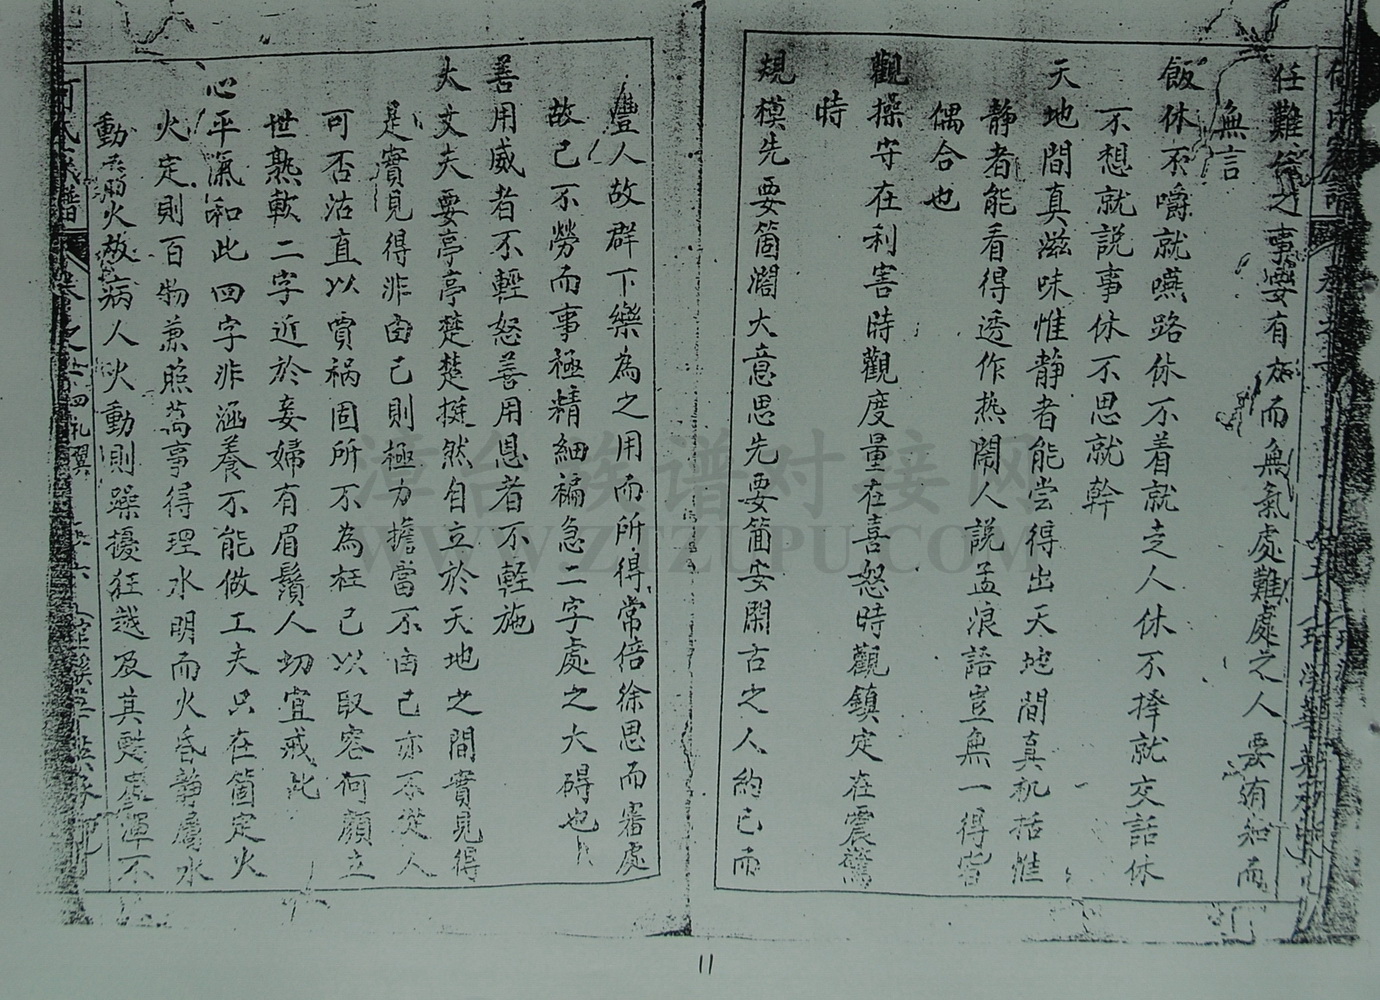 任難任之事要有力而無氣處難處之人要有知而
無言
飯休不嚼就嚥路休不着就走人休不擇就交話休
不想就説事休不思就幹
天地間真滋味惟静者能尝得出天地間真机括惟
静者能看得透作热鬧人説孟浪語豈無一得皆
偶合也
觀操守在利害時觀度量在喜怒時觀鎮定在震驚
時
規模先要箇濶大意思先要箇安閑古之人約己而
豐人故群下樂為之用而所得常倍徐思而審處
故己不勞而事極精細褊急二字處之大碍也
善用威者不輕怒善用恩者不輕施
大丈夫要亭亭楚楚挺然自立於天地之間實見得
是實見得非由己則極力擔當不由己亦不從人
可否沽直以賈禍固所不為枉己以取容何顏立
世熟軟二字近於妾婦有眉鬚人切宜戒此
心平氣和此四字非涵養不能做工夫只在箇定火
火定則百物兼照萬事得理水明而火昏静屬水
動屬火故病人火動則躁擾狂越及其甦虛渾不
潭台族谱对接网
WWW.ZTZUPU.COM
11